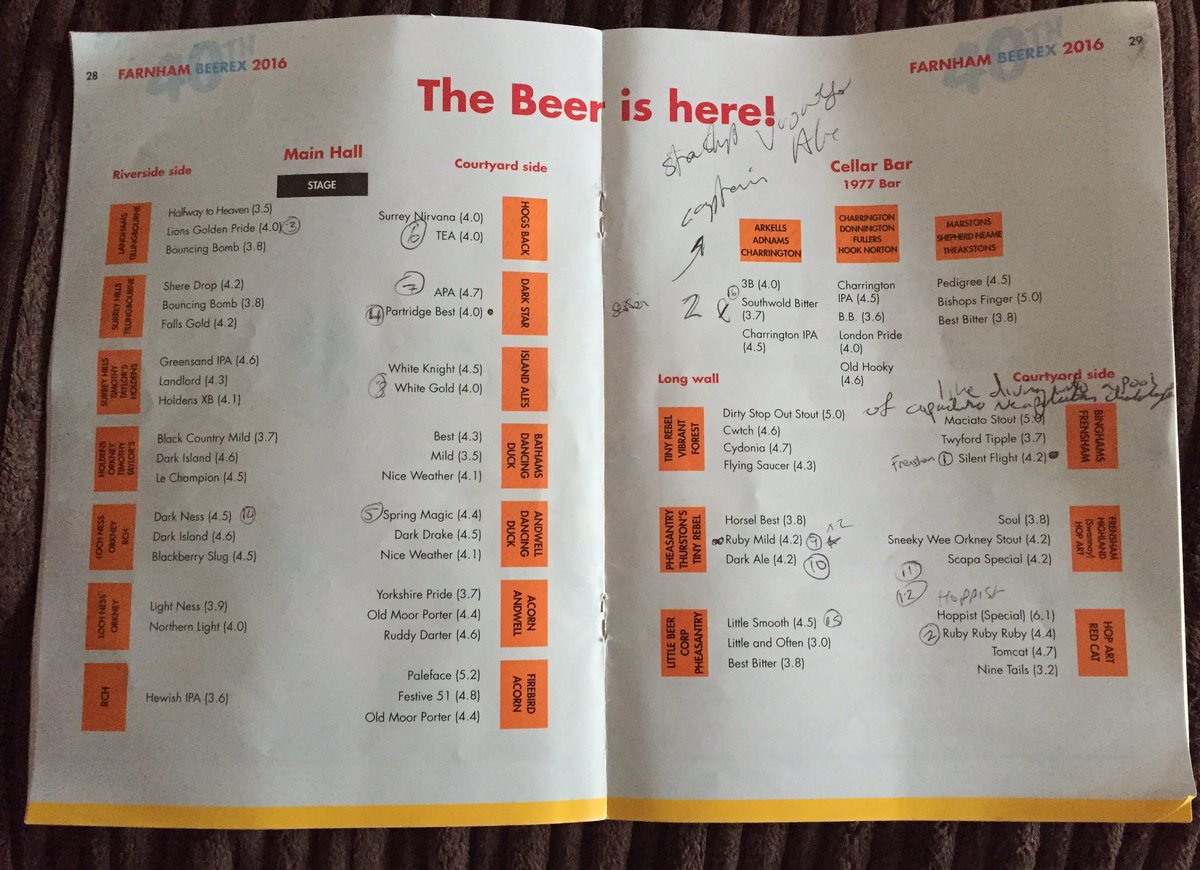 28 FARNHAM BEEREX 2016
40TH
The Beer is here!
Riverside side
Main Hall
STAGE
Courtyard side
LANGHAMS
TILLINGBOURNE
Halfway to Heaven (3.5)
Lions Golden Pride (4.0) 3
Bouncing Bomb (3.8)
SURREY HILLS
TILLINGBOURNE
Shere Drop (4.2)
Bouncing Bomb (3.8)
Falls Gold (4.2)
SURREY HILLS
TIMOTHY
TAYLOR'S
HOLDENS
Greensand IPA (4.6)
Landlord (4.3)
Holdens XB (4.1)
HOLDENS
ORKNEY
TIMOTHY
TAYLOR'S
Black Country Mild (3.7)
Dark Island (4.6)
Le Champion (4.5)
LOCH NESS
ORKNEY
RCH
Dark Ness (4.5) 14
Dark Island (4.6)
Blackberry Slug (4.5)
LOCH NESS
ORKNEY
Light Ness (3.9)
Northern Light (4.0)
RCH
Hewish IPA (3.6)
Surrey Nirvana (4.0)
6 TEA (4.0)
HOGS BACK
7
APA (4.7)
4 Partridge Best (4.0)
DARK STAR
White Knight (4.5)
3 White Gold (4.0)
ISLAND ALES
Best (4.3)
Mild (3.5)
Nice Weather (4.1)
BATHAMS
DANCING
DUCK
5 Spring Magic (4.4)
Dark Drake (4.5)
Nice Weather (4.1)
ANDWELL
DANCING
DUCK
Yorkshire Pride (3.7)
Old Moor Porter (4.4)
Ruddy Darter (4.6)
ACORN
ANDWELL
Paleface (5.2)
Festive 51 (4.8)
Old Moor Porter (4.4)
FIREBIRD
ACORN
FARNHAM BEEREX 2016 29
40TH
Ale
captain
Cellar Bar
1977 Bar
ARKELLS
ADNAMS
CHARRINGTON
3B (4.0)
Southwold Bitter
(3.7)
Charrington IPA
(4.5)
CHARRINGTON
DONNINGTON
FULLERS
HOOK NORTON
Charrington
IPA (4.5)
B.B. (3.6)
London Pride
(4.0)
Old Hooky
(4.6)
MARSTONS
SHEPHERD NEAME
THEAKSTONS
Pedigree (4.5)
Bishops Finger (5.0)
Best Bitter (3.8)
2
Long wall
Courtyard side
like diving into a pool
of
TINY REBEL
VIBRANT
FOREST
Dirty Stop Out Stout (5.0)
Cwtch (4.6)
Cydonia (4.7)
Flying Saucer (4.3)
PHEASANTRY
THURSTON'S
TINY REBEL
Horsel Best (3.8)
Ruby Mild (4.2) 9 x2
Dark Ale (4.2) 10
LITTLE BEER
CORP
PHEASANTRY
Little Smooth (4.5) 15
Little and Often (3.0)
Best Bitter (3.8)
Maciato Stout (5.0)
Twyford Tipple (3.7)
1 Silent Flight (4.2)
BINGHAMS
FRENSHAM
Soul (3.8)
Sneeky Wee Orkney Stout (4.2)
Scapa Special (4.2)
FRENSHAM
HIGHLAND
(Swannay)
HOP ART
11
12 Hoppist
Hoppist (Special) (6.1)
2 Ruby Ruby Ruby (4.4)
Tomcat (4.7)
Nine Tails (3.2)
HOP ART
RED CAT